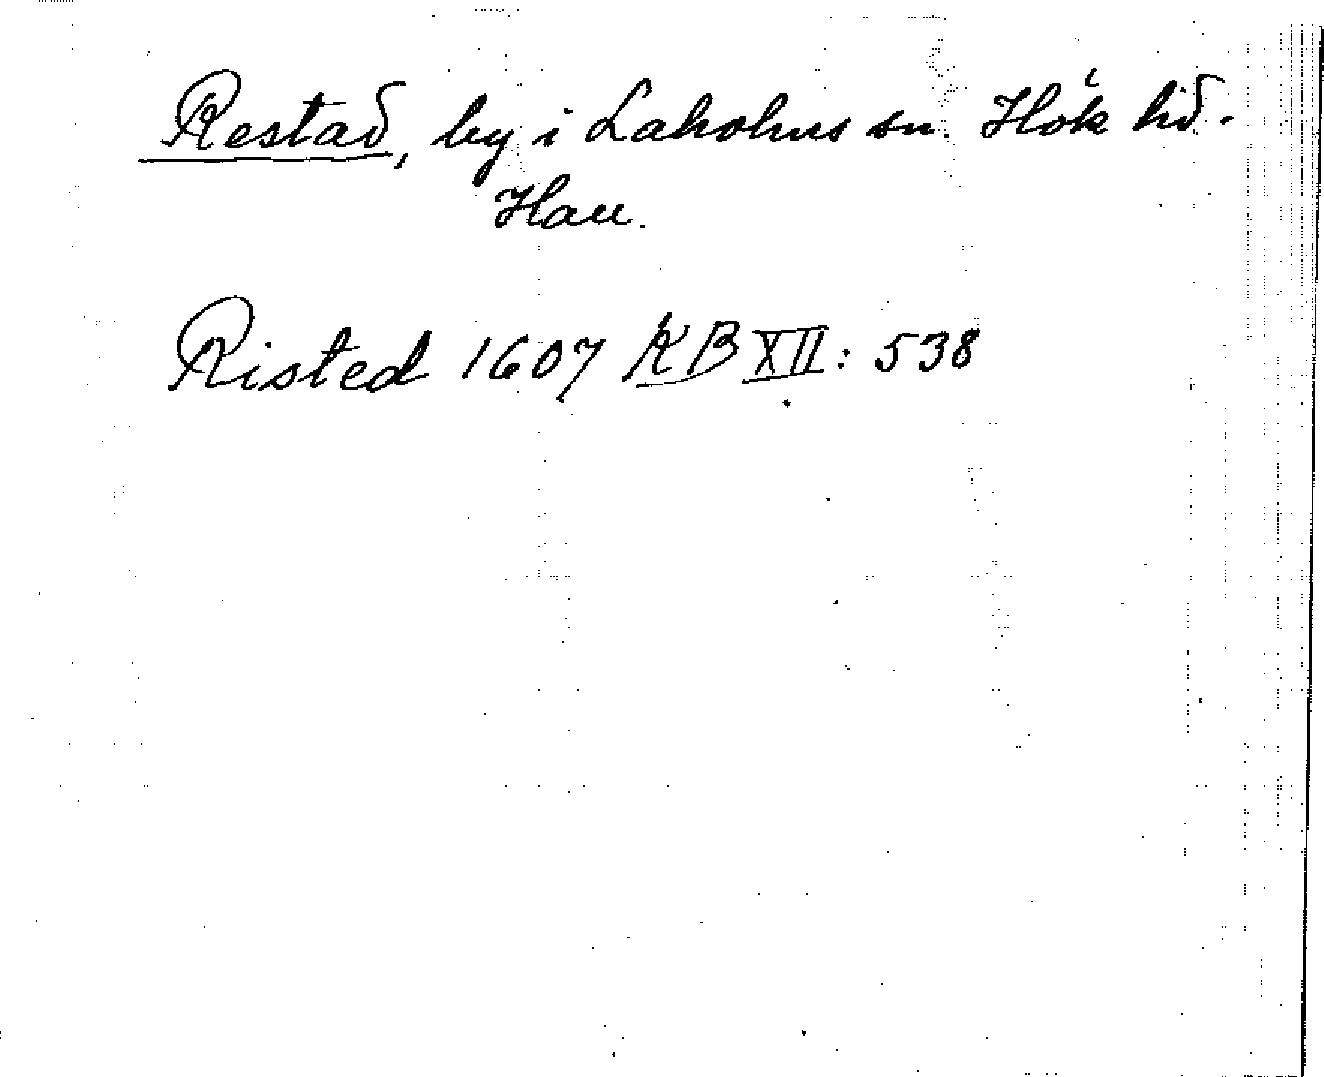 Restad, by i Laholms sn. Hök hd.
Hall.
Risted 1607 KB XII: 538